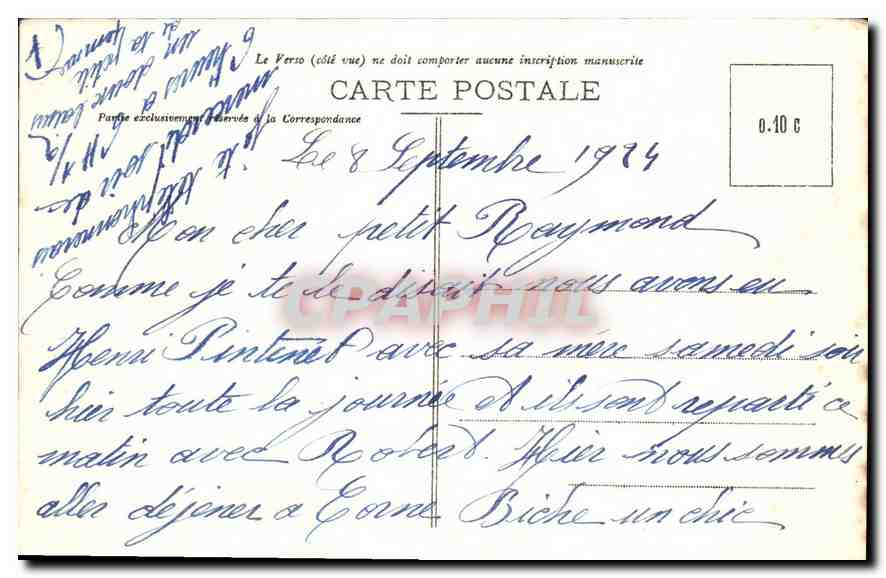 Le Verso (côté vue) ne doit comporter aucune inscription manuscrite
CARTE POSTALE
Partie exclusivement réservée à la Correspondance
0.10 C
Le 8 Septembre 1924
Mon cher petit Raymond
Comme je te le disait nous avons eu
Henri Pintenet avec sa mère samedi soir
hier toute la journée et ils sont reparti ce
matin avec Robert. Hier nous sommes
aller déjener a Corne Biche un chic
je te téléphonnerais
mercredi soir de
6 heures a 6 H 1/2
un doux baiser
de ta petite
CPAPHIL